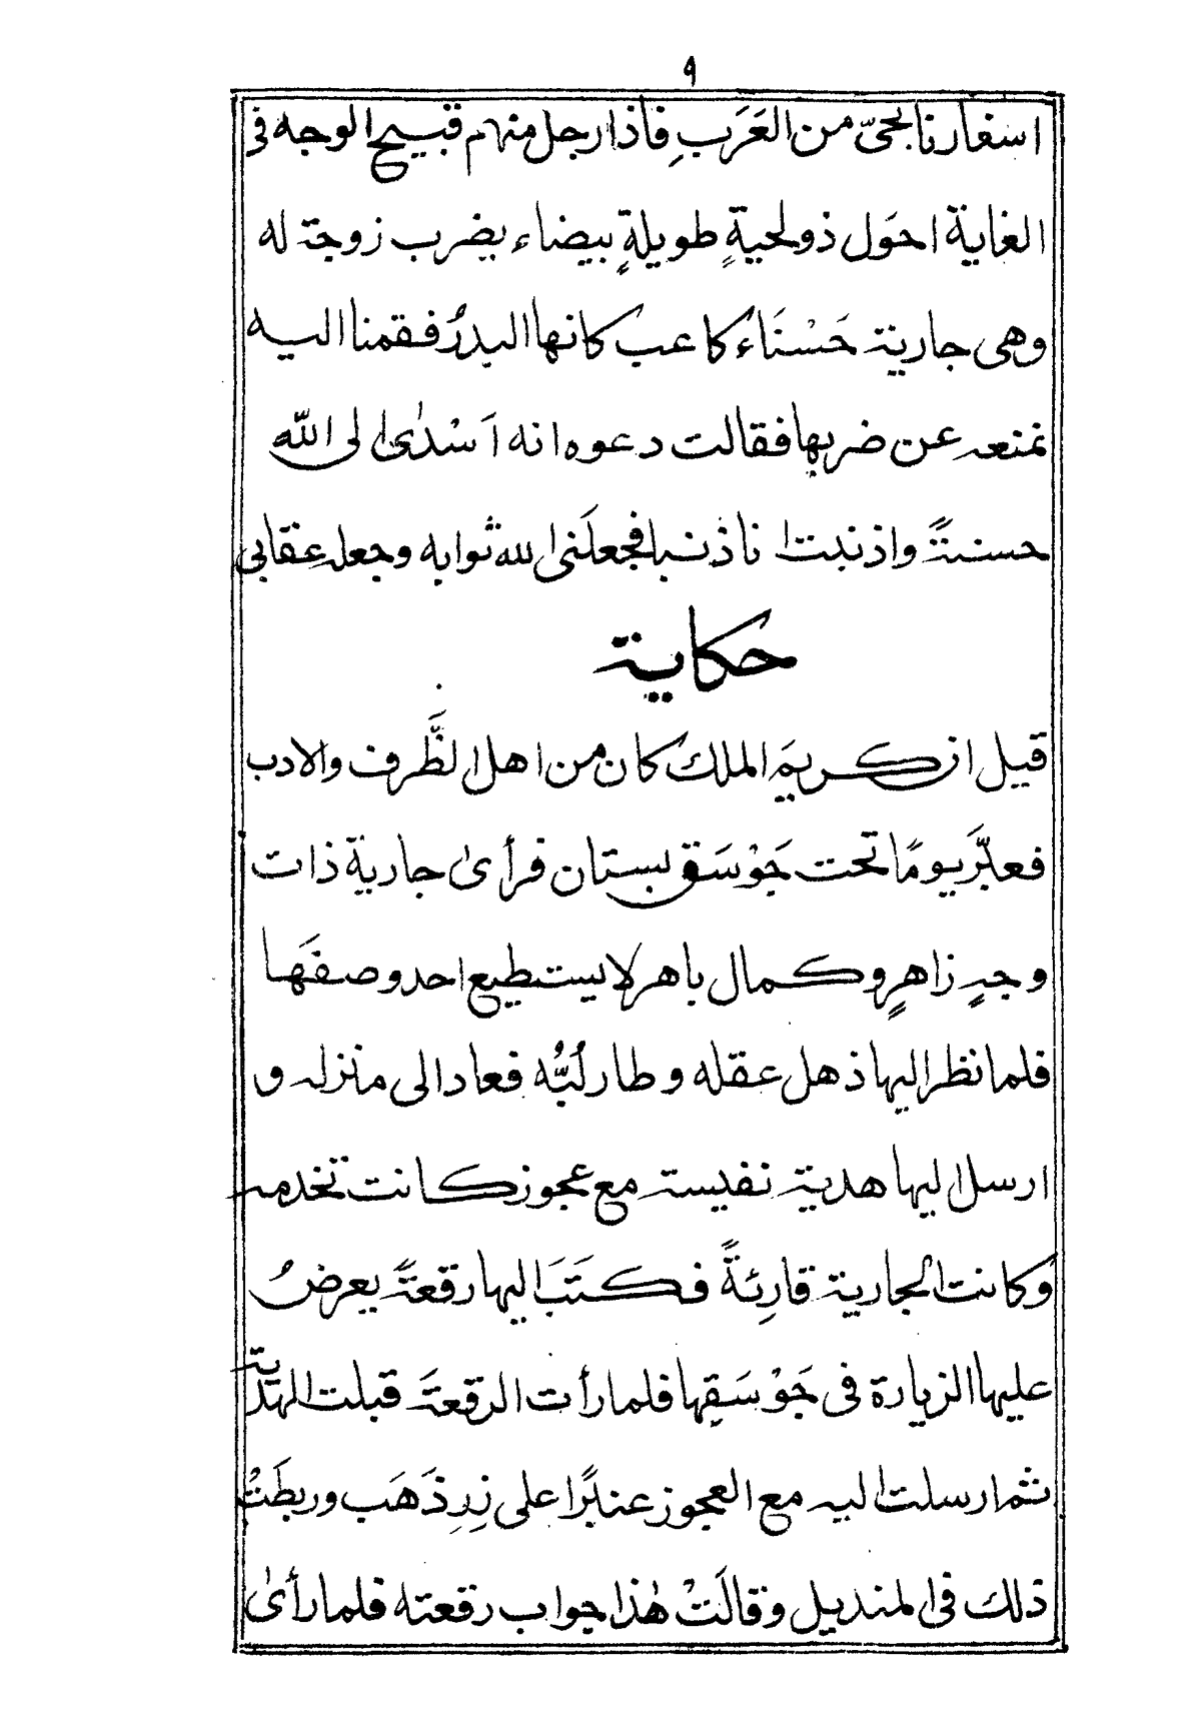 ٩
اسفارنا بحىّ من العَرَبِ فاذا رجل منهم قبيح الوجه فى
الغاية احوَل ذو لحيةٍ طويلةٍ بيضاء يضرب زوجة له
وهى جارية حَسْنَاءُ كاعب كانها البدرُ فقمنا اليه
نمنعه عن ضربها فقالت دعوه انه اَسْدٰى الى اللّٰه
حسنةً واذنبت انا ذنبا فجعلَنى الله ثوابه وجعله عقابى
حكاية
قيل ان كريمَ الملك كان من اهل الظَّرف والادب
فعبَّر يومًا تحت جَوْسَق بستان فرأىٰ جارية ذات
وجهٍ زاهرٍ وكمال باهر لا يستطيع احد وصفَها
فلما نظر اليها ذهل عقله وطار لُبُّه فعاد الى منزله و
ارسل اليها هدية نفيسة مع عجوز كانت تخدمه
وكانت الجارية قارِئةً فكتَبَ اليها رقعةً يعرضُ
عليها الزيارة فى جَوْسَقِها فلما رأت الرقعةَ قبلت الهدية
ثم ارسلت اليه مع العجوز عنبرًا على زِرِ ذَهَب وربطَتْ
ذلك فى المنديل وقالَتْ هٰذا جواب رقعته فلما رأىٰ